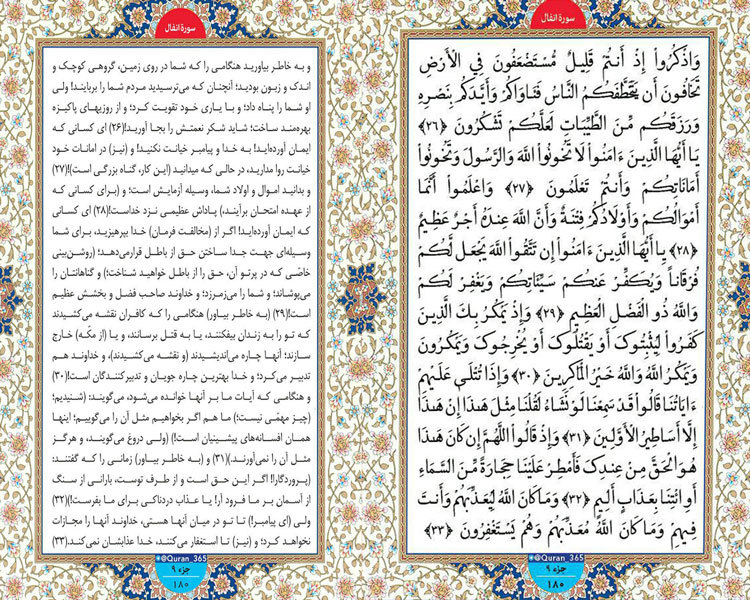 سورة انفال
وَاذْكُرُواْ إِذْ أَنتُمْ قَلِيلٌ مُّسْتَضْعَفُونَ فِي الْأَرْضِ
تَخَافُونَ أَن يَتَخَطَّفَكُمُ النَّاسُ فَـَٔاوَاكُمْ وَأَيَّدَكُم بِنَصْرِهِ
وَرَزَقَكُم مِّنَ الطَّيِّبَاتِ لَعَلَّكُمْ تَشْكُرُونَ ﴿۲۶﴾
يَا أَيُّهَا الَّذِينَ ءَامَنُواْ لَا تَخُونُواْ اللَّهَ وَالرَّسُولَ وَتَخُونُواْ
أَمَانَاتِكُمْ وَأَنتُمْ تَعْلَمُونَ ﴿۲۷﴾ وَاعْلَمُواْ أَنَّمَا
أَمْوَالُكُمْ وَأَوْلَادُكُمْ فِتْنَةٌ وَأَنَّ اللَّهَ عِندَهُ أَجْرٌ عَظِيمٌ
﴿۲۸﴾ يَا أَيُّهَا الَّذِينَ ءَامَنُواْ إِن تَتَّقُواْ اللَّهَ يَجْعَل لَّكُمْ
فُرْقَانًا وَيُكَفِّرْ عَنكُمْ سَيِّئَاتِكُمْ وَيَغْفِرْ لَكُمْ
وَاللَّهُ ذُو الْفَضْلِ الْعَظِيمِ ﴿۲۹﴾ وَإِذْ يَمْكُرُ بِكَ الَّذِينَ
كَفَرُواْ لِيُثْبِتُوكَ أَوْ يَقْتُلُوكَ أَوْ يُخْرِجُوكَ وَيَمْكُرُونَ
وَيَمْكُرُ اللَّهُ وَاللَّهُ خَيْرُ الْمَاكِرِينَ ﴿۳۰﴾ وَإِذَا تُتْلَى عَلَيْهِمْ
ءَايَاتُنَا قَالُواْ قَدْ سَمِعْنَا لَوْ نَشَاءُ لَقُلْنَا مِثْلَ هَـٰذَا إِنْ هَـٰذَا
إِلَّا أَسَاطِيرُ الْأَوَّلِينَ ﴿۳۱﴾ وَإِذْ قَالُواْ اللَّهُمَّ إِن كَانَ هَـٰذَا
هُوَ الْحَقَّ مِنْ عِندِكَ فَأَمْطِرْ عَلَيْنَا حِجَارَةً مِّنَ السَّمَاءِ
أَوِ ائْتِنَا بِعَذَابٍ أَلِيمٍ ﴿۳۲﴾ وَمَا كَانَ اللَّهُ لِيُعَذِّبَهُمْ وَأَنتَ
فِيهِمْ وَمَا كَانَ اللَّهُ مُعَذِّبَهُمْ وَهُمْ يَسْتَغْفِرُونَ ﴿۳۳﴾
@Quran_365
جزء ۹
۱۸۰
سورة انفال
و به خاطر بیاورید هنگامی را که شما در روی زمین، گروهی کوچک و
اندک و زبون بودید؛ آنچنان که می‌ترسیدید مردم شما را بربایند! ولی
او شما را پناه داد؛ و با یاری خود تقویت کرد؛ و از روزیهای پاکیزه
بهره‌مند ساخت؛ شاید شکر نعمتش را بجا آورید!(۲۶) ای کسانی که
ایمان آورده‌اید! به خدا و پیامبر خیانت نکنید! و (نیز) در امانات خود
خیانت روا مدارید، در حالی که میدانید (این کار، گناه بزرگی است)!(۲۷)
و بدانید اموال و اولاد شما، وسیله آزمایش است؛ و (برای کسانی که
از عهده امتحان برآیند،) پاداش عظیمی نزد خداست!(۲۸) ای کسانی
که ایمان آورده‌اید! اگر از (مخالفت فرمان) خدا بپرهیزید، برای شما
وسیله‌ای جهت جدا ساختن حق از باطل قرارمی‌دهد؛ (روشن‌بینی
خاصّی که در پرتو آن، حق را از باطل خواهید شناخت؛) و گناهانتان را
می‌پوشاند؛ و شما را می‌آمرزد؛ و خداوند صاحب فضل و بخشش عظیم
است!(۲۹) (به خاطر بیاور) هنگامی را که کافران نقشه می‌کشیدند
که تو را به زندان بیفکنند، یا به قتل برسانند، و یا (از مکّه) خارج
سازند؛ آنها چاره می‌اندیشیدند (و نقشه می‌کشیدند)، و خداوند هم
تدبیر می‌کرد؛ و خدا بهترین چاره جویان و تدبیرکنندگان است!(۳۰)
و هنگامی که آیات ما بر آنها خوانده می‌شود، می‌گویند: (شنیدیم؛
(چیز مهمّی نیست؛) ما هم اگر بخواهیم مثل آن را می‌گوییم؛ اینها
همان افسانه‌های پیشینیان است!) (ولی دروغ می‌گویند، و هرگز
مثل آن را نمی‌آورند.)(۳۱) و (به خاطر بیاور) زمانی را که گفتند:
(پروردگارا! اگر این حق است و از طرف توست، بارانی از سنگ
از آسمان بر ما فرود آر! یا عذاب دردناکی برای ما بفرست!)(۳۲)
ولی (ای پیامبر!) تا تو در میان آنها هستی، خداوند آنها را مجازات
نخواهد کرد؛ و (نیز) تا استغفار می‌کنند، خدا عذابشان نمی‌کند.(۳۳)
@Quran_365
جزء ۹
۱۸۰